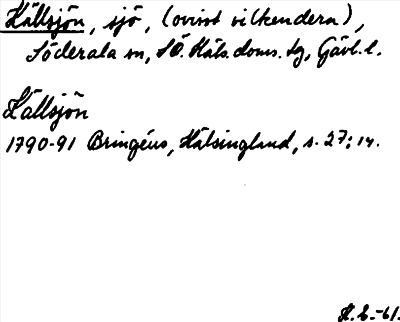 Källsjön, sjö, (ovisst vilkendera),
Söderala sn, SÖ. Häls. doms. sg, Gävl. l.
Källsjön
1790-91 Bringéus, Hälsingland, s. 27; 14.
H. L. -61.